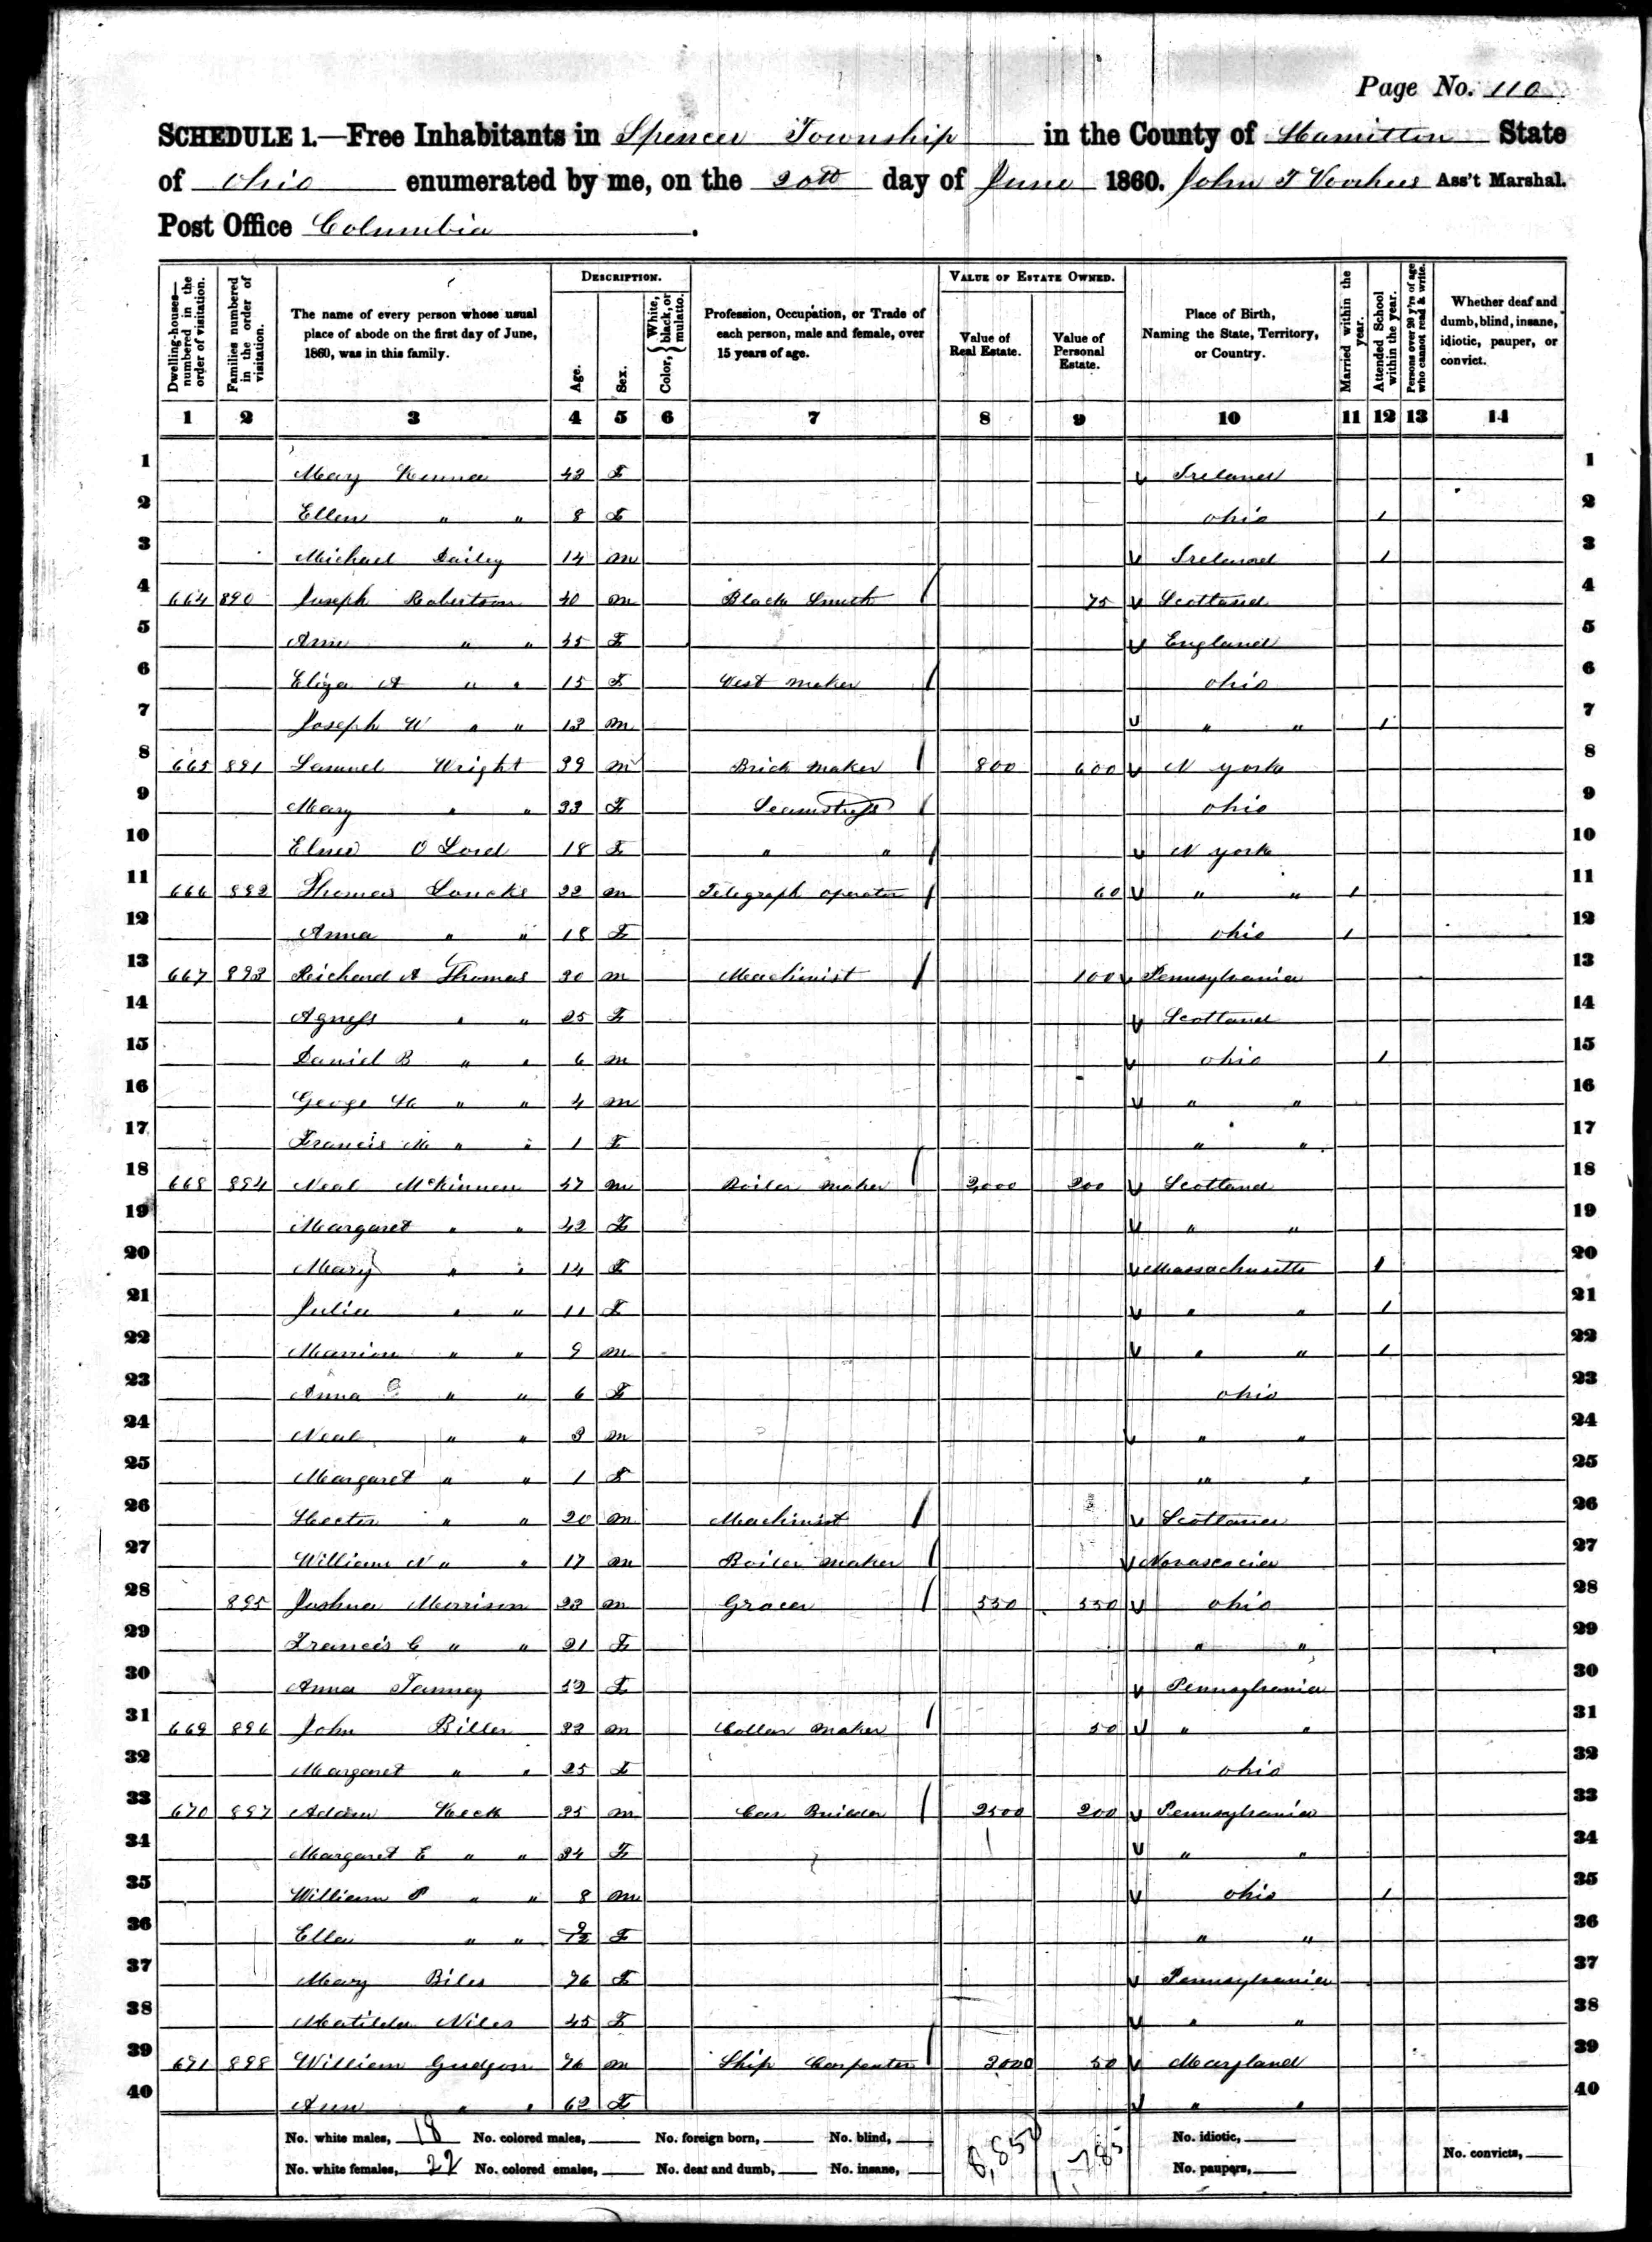 Page No. 110
SCHEDULE 1.—Free Inhabitants in Spencer Township in the County of Hamilton State
of Ohio enumerated by me, on the 20th day of June 1860. John T Voorhees Ass't Marshal.
Post Office Columbia.
DESCRIPTION. VALUE OF ESTATE OWNED.
Dwelling-houses—numbered in the order of visitation. Families numbered in the order of visitation. The name of every person whose usual place of abode on the first day of June, 1860, was in this family. Age. Sex. Color, {White, black, or mulatto. Profession, Occupation, or Trade of each person, male and female, over 15 years of age. Value of Real Estate. Value of Personal Estate. Place of Birth, Naming the State, Territory, or Country. Married within the year. Attended School within the year. Persons over 20 y'rs of age who cannot read & write. Whether deaf and dumb, blind, insane, idiotic, pauper, or convict.
1 2 3 4 5 6 7 8 9 10 11 12 13 14
1 Mary Kenna F Ireland 1
2 Ellen " " 8 F Ohio 1 2
3 Michael Dailey 14 m Ireland 1 3
4 664 890 Joseph Robertson 40 m Black Smith 75 Scotland 4
5 Ann " " 45 F England 5
6 Eliza A " " 15 F Vest Maker Ohio 6
7 Joseph W " " 13 m " " 1 7
8 665 891 Samuel Wright 39 m Brick Maker 800 600 N York 8
9 Mary " " 33 F Seamstress Ohio 9
10 O Lord 18 F " " N York 10
11 666 892 Thomas Loucks 22 m Telegraph Operator 60 " " 1 11
12 Anna " " 18 F Ohio 1 12
13 667 893 Richard A Thomas 30 m Machinist 100 Pennsylvania 13
14 Agness " " 25 F Scotland 14
15 Daniel B " " 6 m Ohio 1 15
16 George W " " 4 m " " 16
17 Francis M " " 1 F " " 17
18 668 894 Neal McKinnen 47 m Boiler Maker 200 Scotland 18
19 Margaret " " 42 F " " 19
20 Mary " " 14 F Massachusetts 1 20
21 Julia " " 11 F " " 1 21
22 Marrion " " 9 m " " 1 22
23 Anna " " 6 F Ohio 23
24 Neal " " 3 m " " 24
25 Margaret " " 1 F " " 25
26 Hector " " 20 m Machinist Scotland 26
27 William N " " 17 m Boiler Maker Novascocia 27
28 895 Joshua Morrison 23 m Grocer 550 550 Ohio 28
29 Francis C " " 21 F " " 29
30 Anna Tanney F Pennsylvania 30
31 669 896 John Biller 33 m Collar Maker 50 " " 31
32 Margaret " " 25 F Ohio 32
33 670 897 Adam Keck 35 m Car Builder 2500 200 Pennsylvania 33
34 Margaret E " " 34 F " " 34
35 William P " " 8 m Ohio 1 35
36 Ella " " 9/12 F " " 36
37 Mary Biles 76 F Pennsylvania 37
38 Matilda Niles 45 F " " 38
39 671 898 William Gudgeon 76 m Ship Carpenter 50 Maryland 39
40 Ann " " 62 F " " 40
No. white males, 18 No. colored males, No. foreign born, No. blind, 8,850 1,785 No. idiotic,
No. white females, 22 No. colored emales, No. deaf and dumb, No. insane, No. paupers, No. convicts,